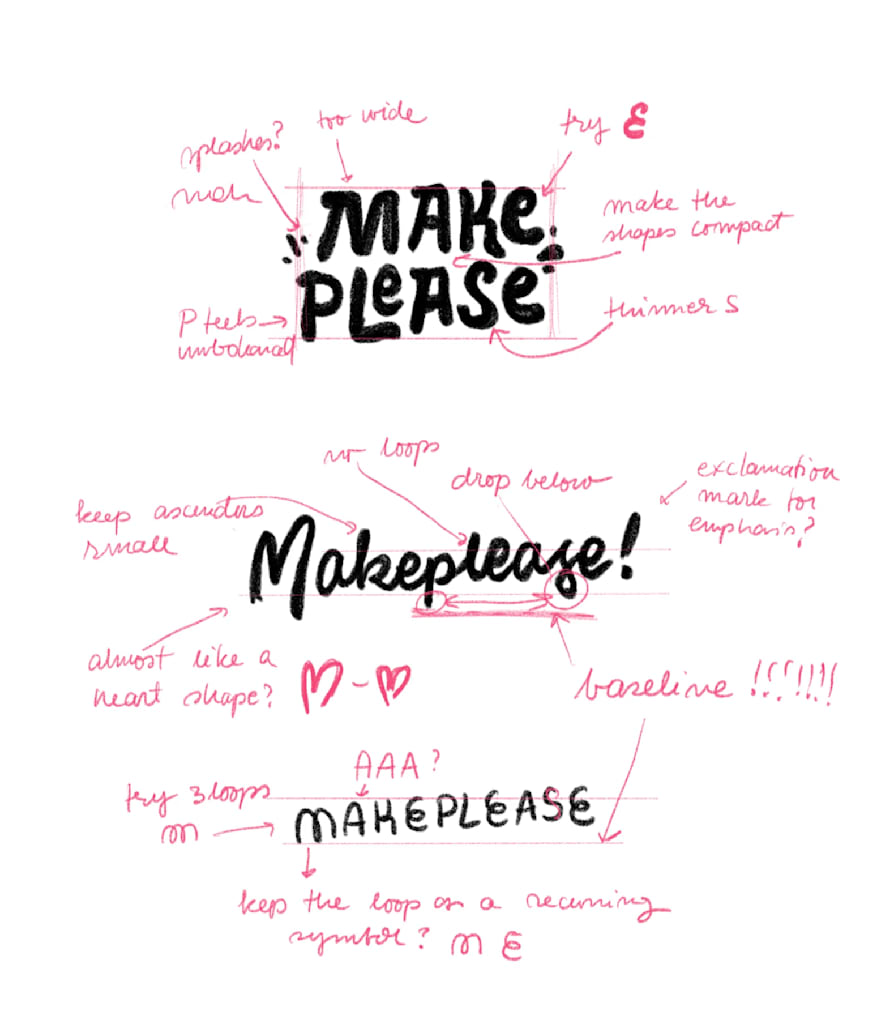 splashes?
too wide
try E
MAKe
PLeASe
make the
shapes compact
P feels
thinner S
no loops
drop below
exclamation
mark for
emphasis?
keep ascenders
small
Makeplease!
almost like a
heart shape?
baseline !!!!!!!
AAA?
try 3 loops
m
MAKEPLEASE
kep the loop as a recurring
symbol? m E